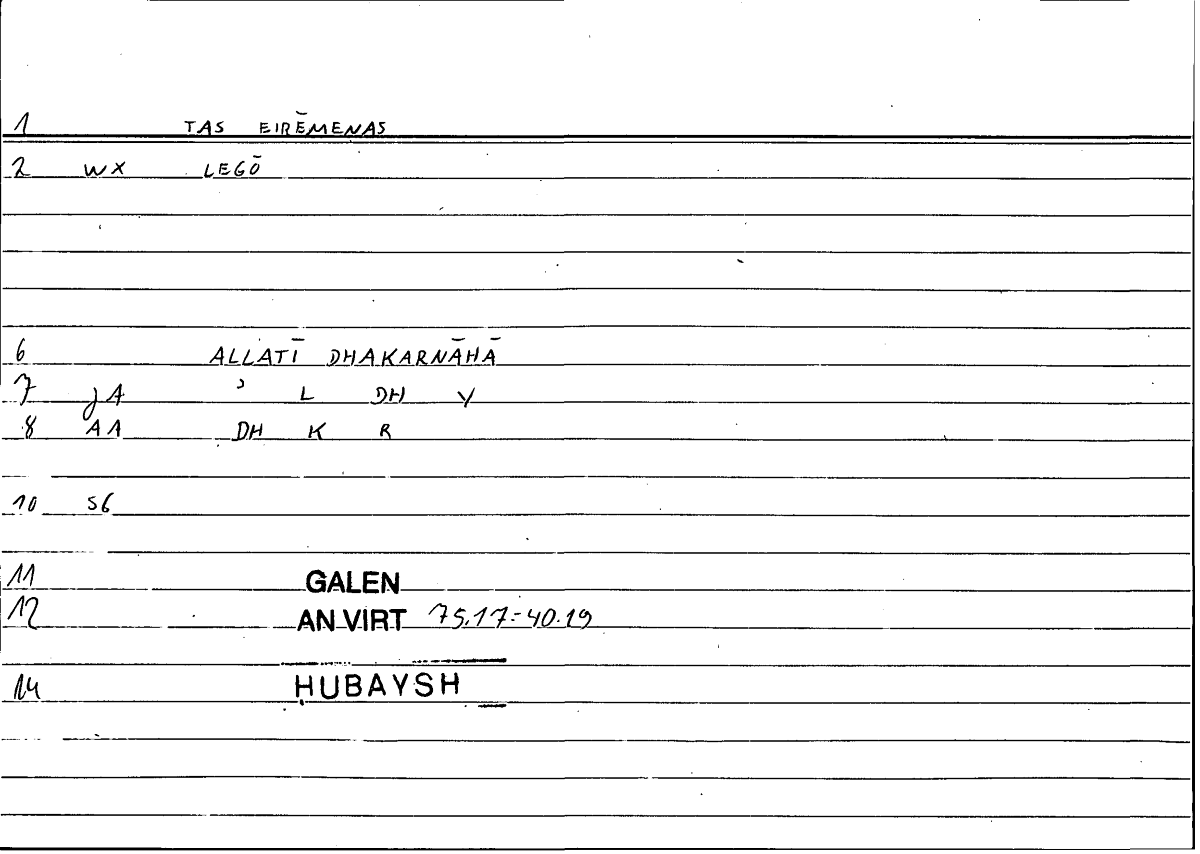 1 TAS EIRĒMENAS
2 WX LEGŌ
6 ALLATĪ DHAKARNĀHĀ
7 JA ʾ L DH Y
8 AA DH K R
10 S6
11 GALEN
12 AN VIRT 75.17=40.19
14 ḤUBAYSH